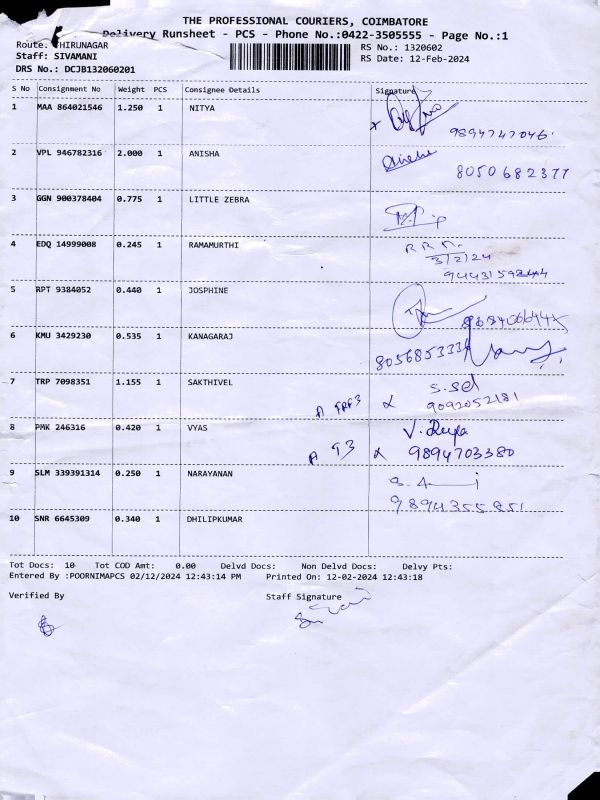 THE PROFESSIONAL COURIERS, COIMBATORE
Delivery Runsheet - PCS - Phone No.:0422-3505555 - Page No.:1
Route: THIRUNAGAR
RS No.: 1320602
Staff: SIVAMANI
RS Date: 12-Feb-2024
DRS No.: DCJB132060201
S No Consignment No Weight PCS Consignee Details Signature
1 MAA 864021546 1.250 1 NITYA
9894747046.
2 VPL 946782316 2.000 1 ANISHA
8050682377
3 GGN 900378404 0.775 1 LITTLE ZEBRA
4 EDQ 14999008 0.245 1 RAMAMURTHI
3/2/24
5 RPT 9384052 0.440 1 JOSPHINE
6 KMU 3429230 0.535 1 KANAGARAJ
7 TRP 7098351 1.155 1 SAKTHIVEL
9092052181
8 PMK 246316 0.420 1 VYAS
9894703380
9 SLM 339391314 0.250 1 NARAYANAN
9894355851
10 SNR 6645309 0.340 1 DHILIPKUMAR
Tot Docs: 10 Tot COD Amt: 0.00 Delvd Docs: Non Delvd Docs: Delvy Pts:
Entered By :POORNIMAPCS 02/12/2024 12:43:14 PM Printed On: 12-02-2024 12:43:18
Verified By Staff Signature